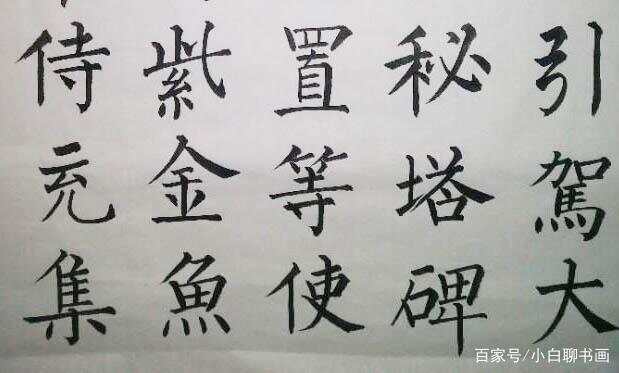 引駕大
秘塔碑
置等使
紫金魚
侍充集
百家号/小白聊书画